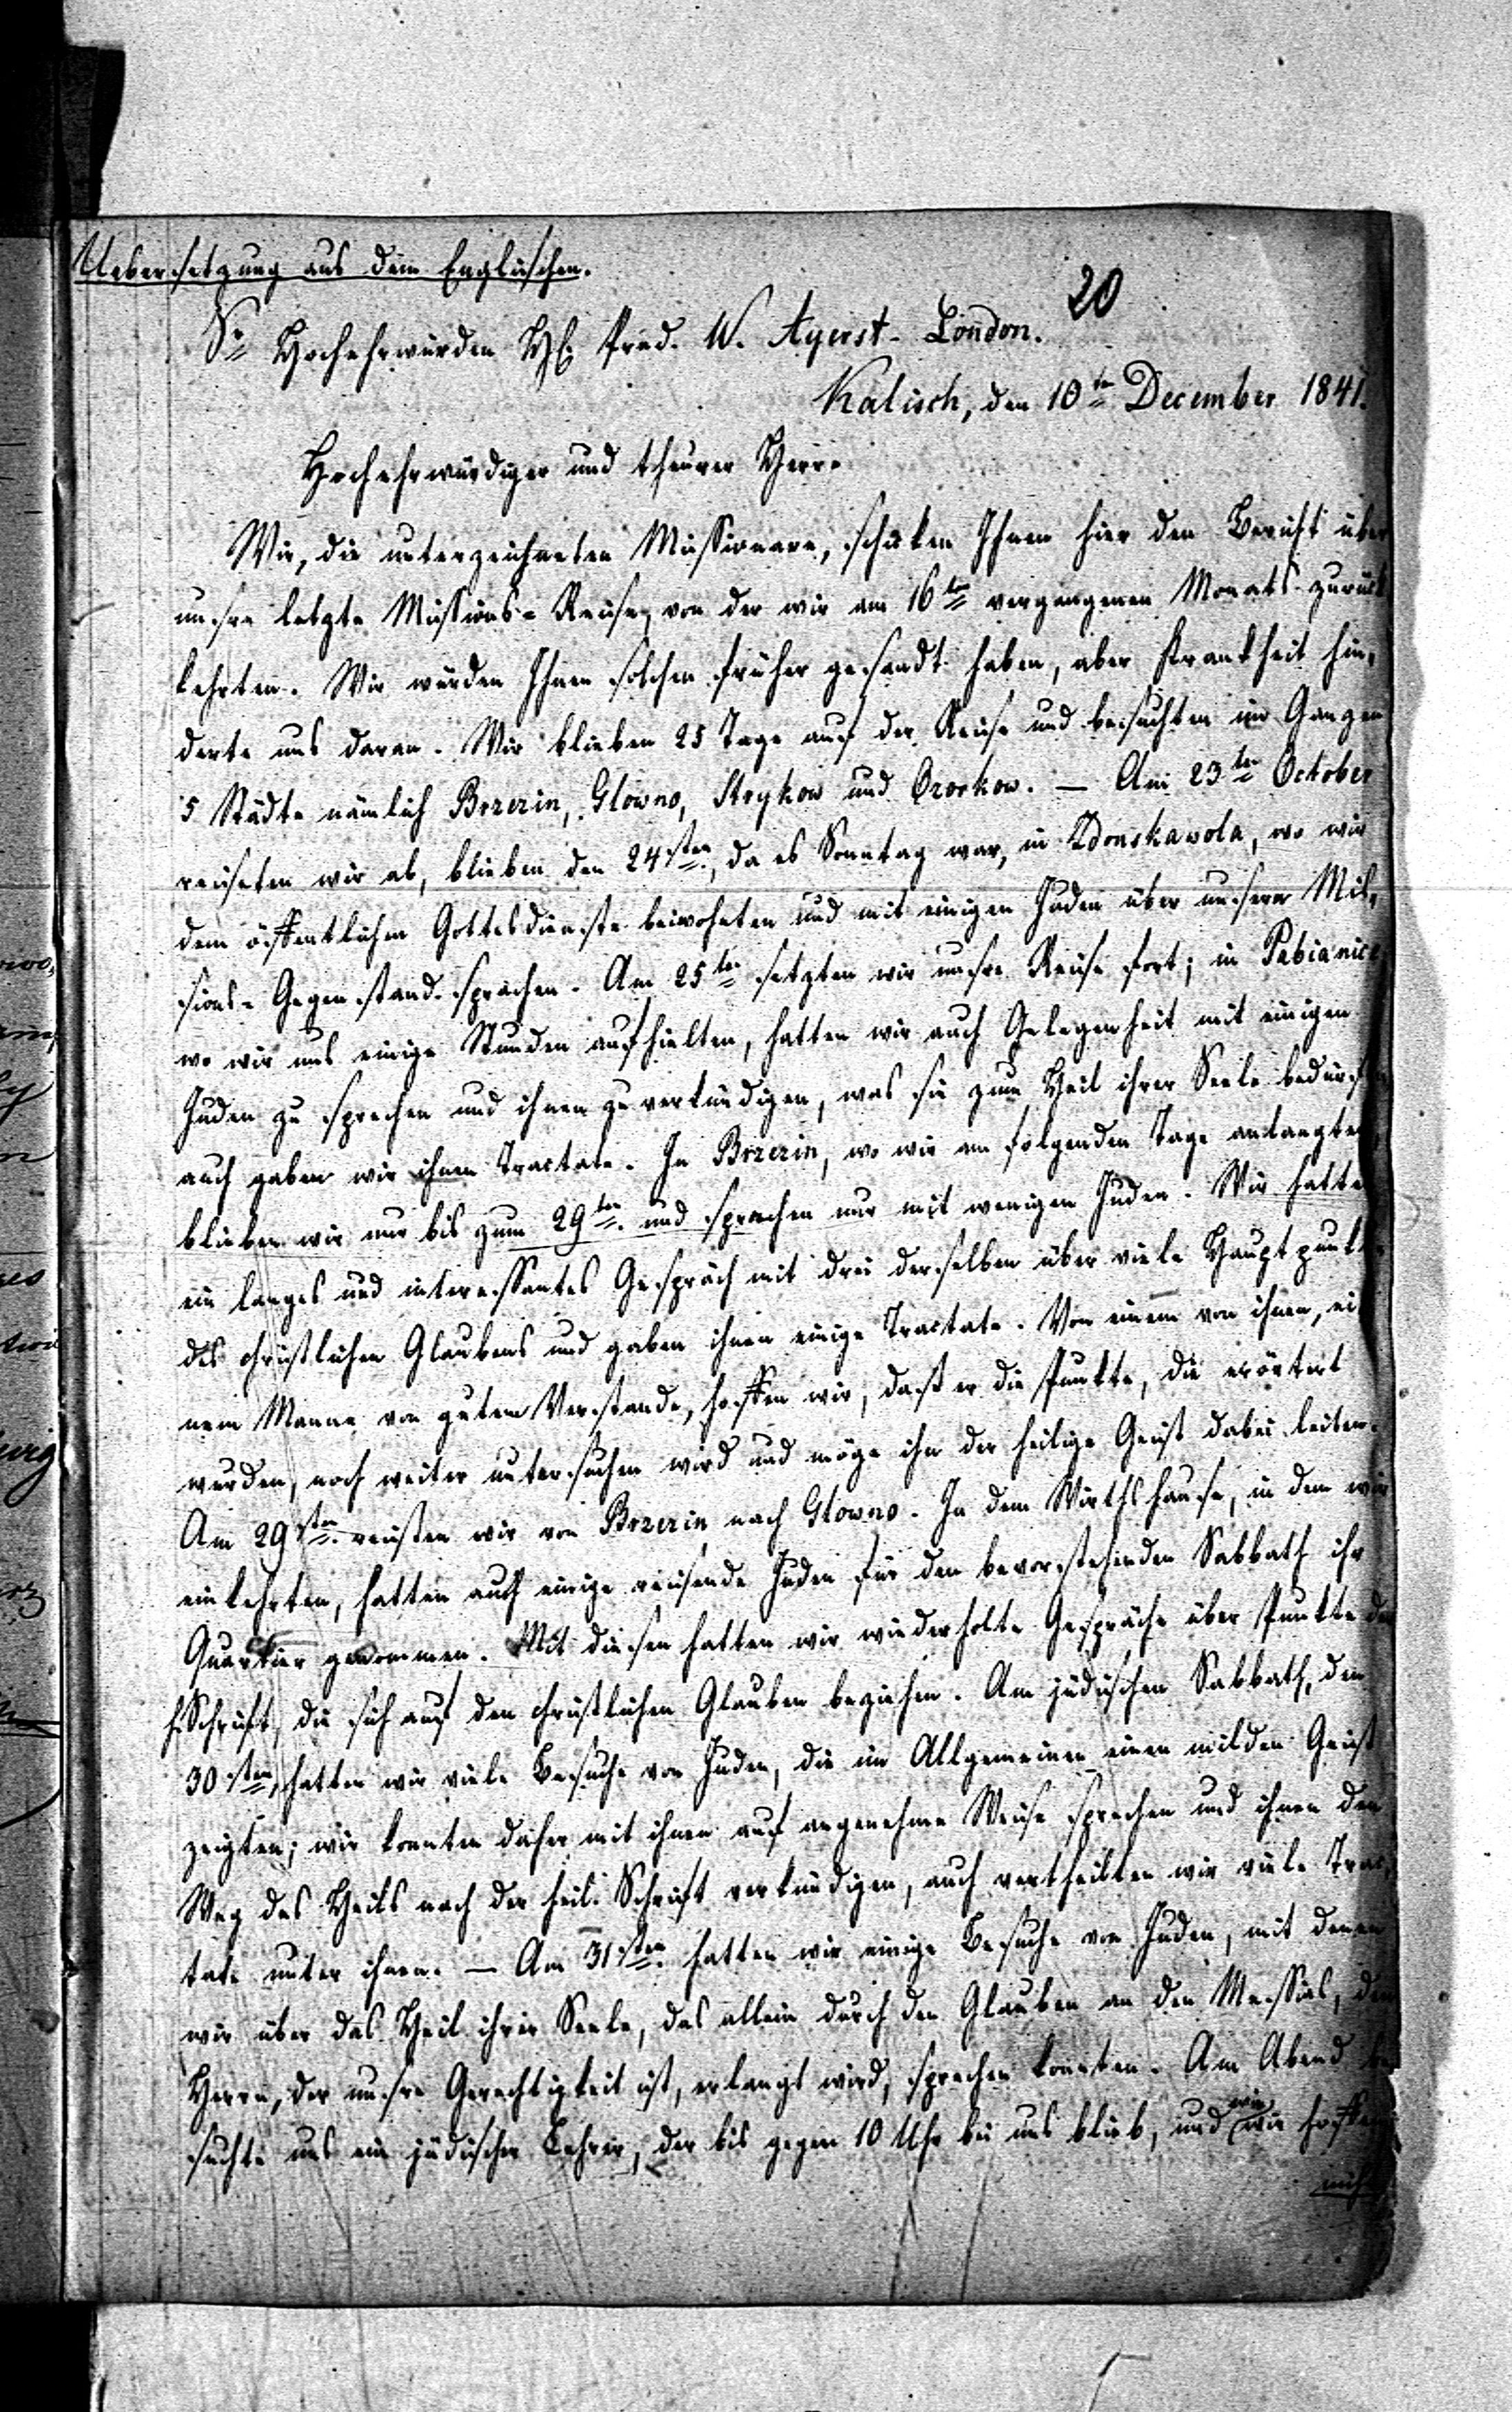 Uebersetzung aus dem Englischen.
20
Sr Hochehrwürden H. Pred. W. Ayerst - London.
Kalisch, den 10ten December 1841.
Hochehrwürdiger und theurer Herr.
Wir, die unterzeichneten Missionare, schicken Ihnen hier den Bericht über
unsre letzte Missions-Reise, von der wir am 16ten vergangenen Monats zurück
kehrten. Wir würden Ihnen solchen früher gesandt haben, aber Krankheit hin,
derte uns daran. Wir blieben 25 Tage auf der Reise und besuchten im Ganzen
5 Städte nämlich Brzezin, Glowno, Strykow und Ozorkow. — Am 23ten October
reiseten wir ab, blieben den 24sten, da es Sonntag war, in Zdonskawola, wo wir
dem öffentlichen Gottesdienste beiwohnten und mit einigen Juden über unsern Mis,
sions-Gegenstand sprachen. Am 25ten setzten wir unsre Reise fort; in Pabianice
wo wir uns einige Stunden aufhielten, hatten wir auch Gelegenheit mit einigen
Juden zu sprechen und ihnen zu verkündigen, was sie zum Heil ihrer Seele
auch gaben wir ihnen Tractate. In Brzezin, wo wir am folgenden Tage anlangten,
blieben wir nur bis zum 29ten und sprachen nur mit wenigen Juden. Wir hatten
ein langes und interessantes Gespräch mit drei derselben über viele Hauptpunkte
des christlichen Glaubens und gaben ihnen einige Tractate. Von einem von ihnen, ei
nem Manne von gutem Verstande, hoffen wir, daß er die Punkte, die erörtert
wurden, noch weiter untersuchen wird und möge ihn der heilige Geist dabei leiten.
Am 29sten reisten wir von Brzezin nach Glowno. In dem Wirthshause, in dem wir
einkehrten, hatten auch einige reisende Juden für den bevorstehenden Sabbath ihr
Quartier genommen. Mit diesen hatten wir wiederholte Gespräche über Punkte der
h. Schrift, die sich auf den christlichen Glauben beziehen. Am jüdischen Sabbath, den
30sten, hatten wir viele Besuche von Juden, die im Allgemeinen einen milden Geist
zeigten; wir konnten daher mit ihnen auf angenehme Weise sprechen und ihnen den
Weg des Heils nach der heil. Schrift verkündigen, auch vertheilten wir viele Trac,
tate unter ihnen. — Am 31sten hatten wir einige Besuche von Juden, mit denen
wir über das Heil ihrer Seele, das allein durch den Glauben an den Messias, den
Herrn, der unsre Gerechtigkeit ist, erlangt wird, sprechen konnten. Am Abend be
suchte uns ein jüdischer Lehrer, der bis gegen 10 Uhr bei uns blieb, und wie wir hoffen
nicht